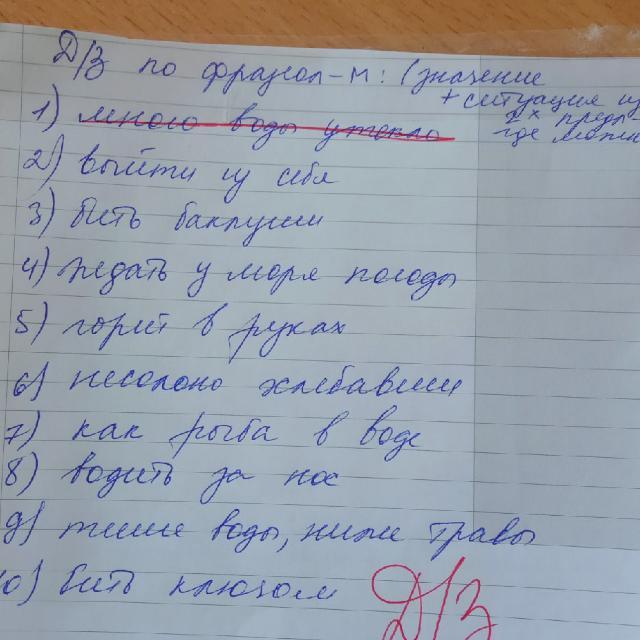 Д/З по фразеол-м: (значение
+ ситуация из
2х предл
где можн
1) много воды утекло
2) выйти из себя
3) бить баклуши
4) ждать у моря погоды
5) горит в руках
6) несолоно хлебавши
7) как рыба в воде
8) водить за нос
9) тише воды, ниже травы
10) бить ключом
Д/З